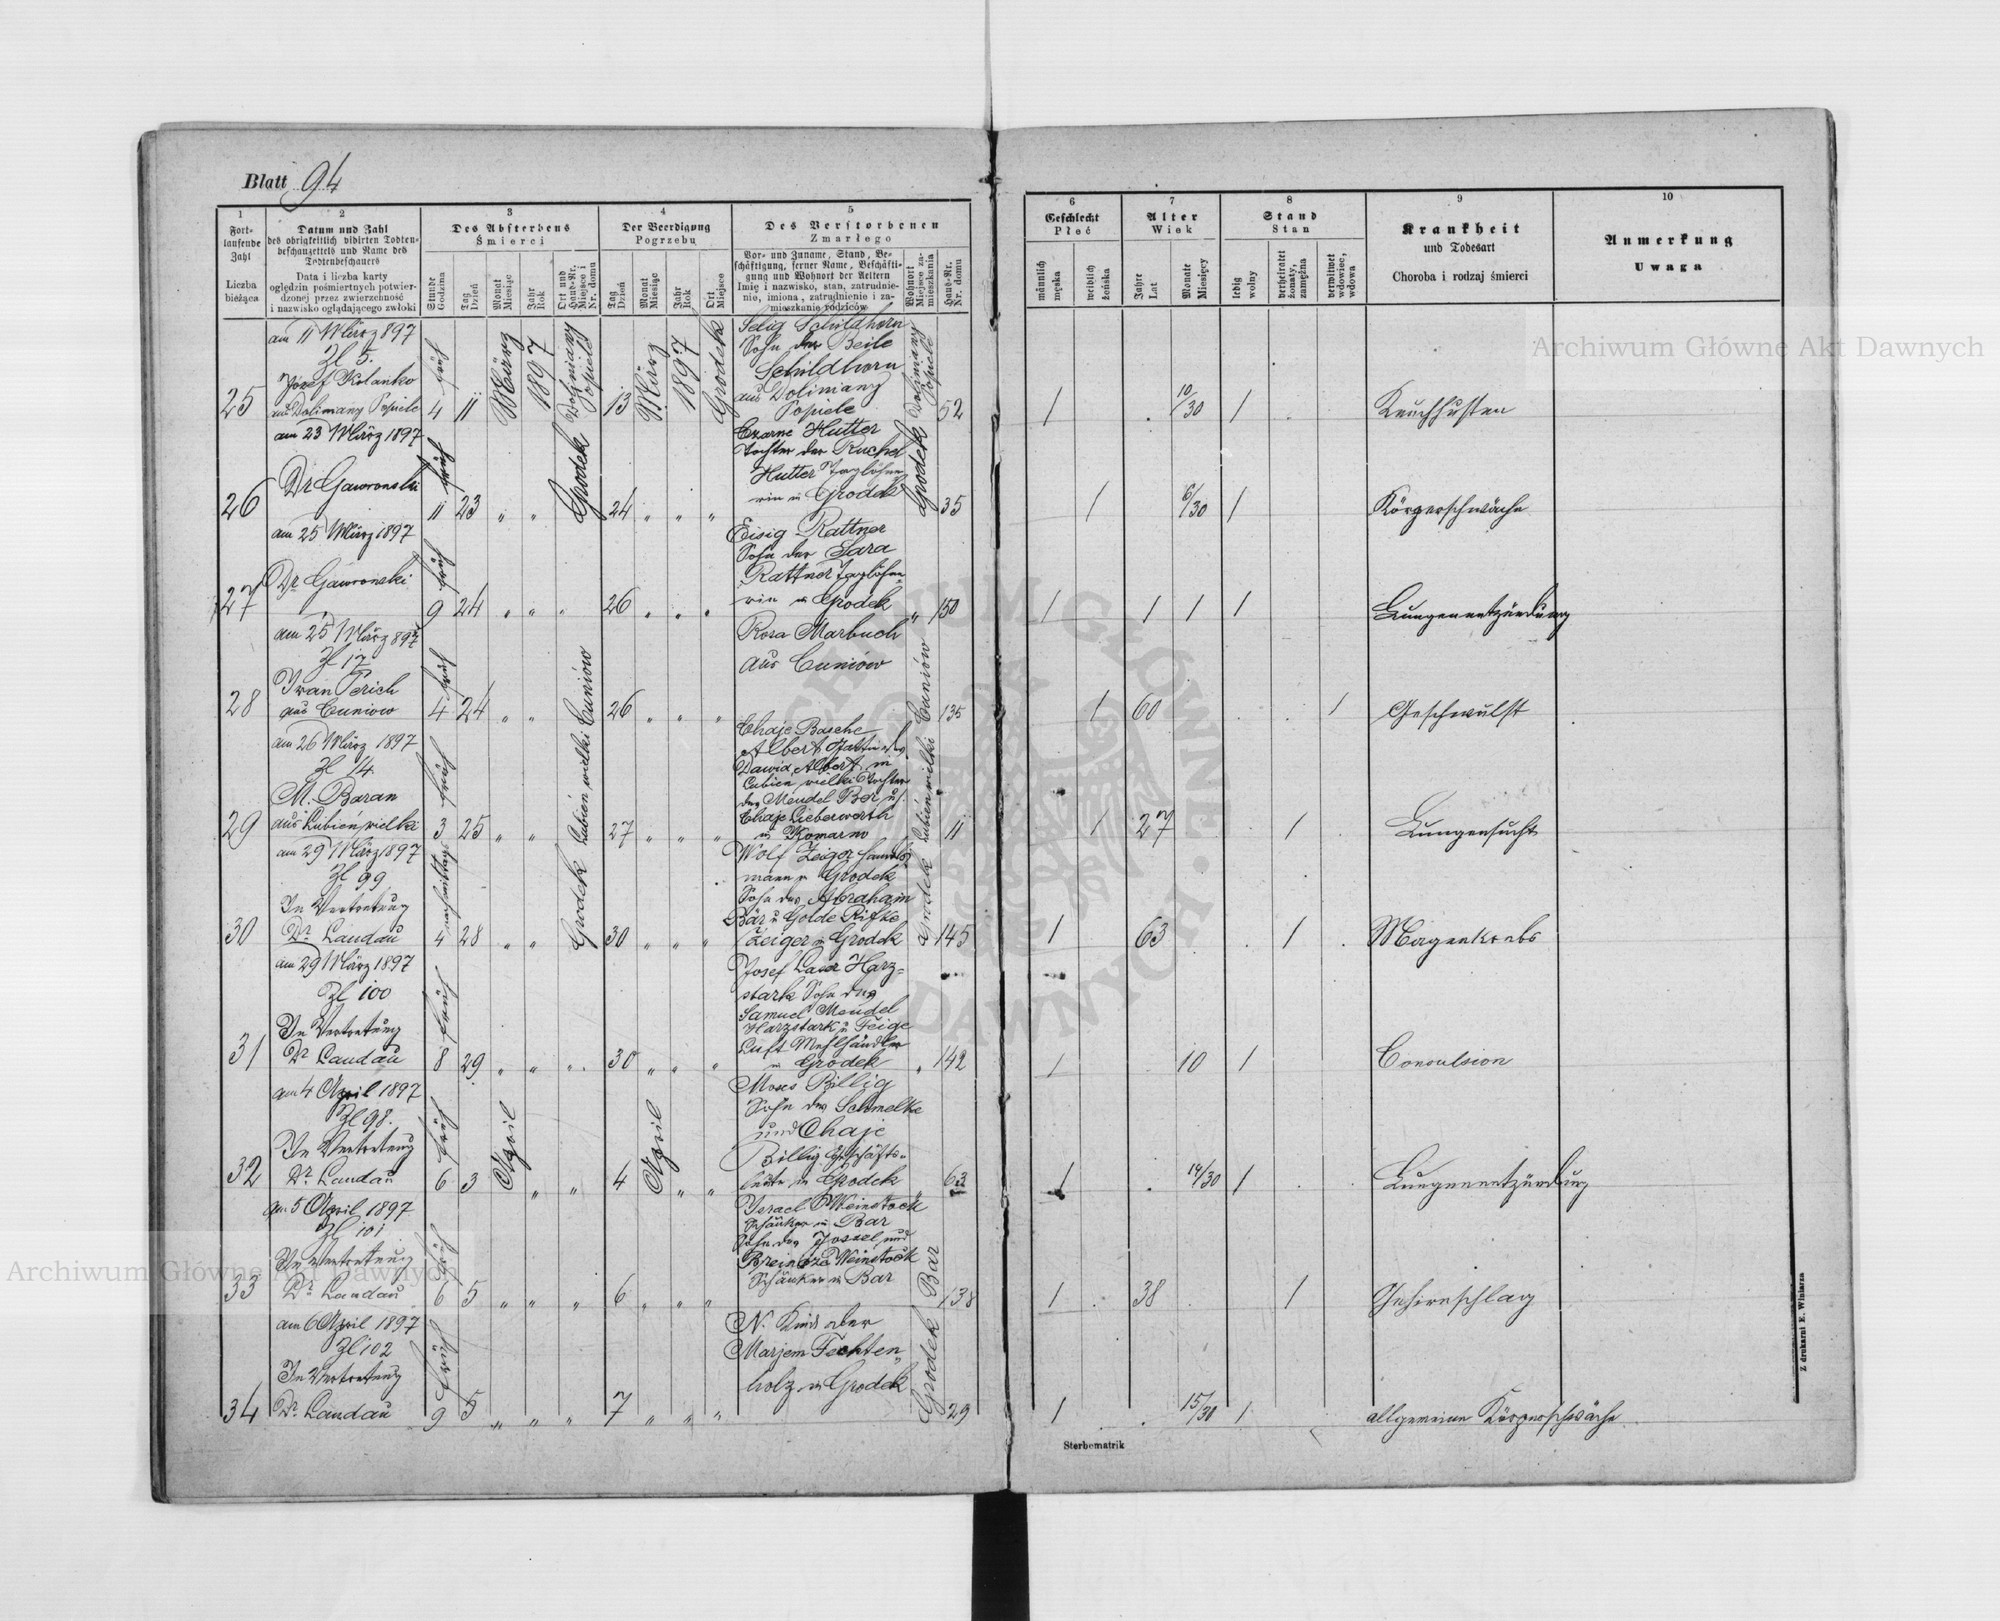 Blatt 94
1
Fort-
laufende
Zahl
Liczba
bieżąca
2
Datum und Zahl
des obrigkeitlich vidirten Todten-
beschauzettels und Name des
Todtenbeschauers
Data i liczba karty
oględzin pośmiertnych potwier-
dzonej przez zwierzchność
i nazwisko oglądającego zwłoki
3
Des Absterbens
Śmierci
Stunde
Godzina
Tag
Dzień
Monat
Miesiąc
Jahr
Rok
Ort und
Haus-Nr.
Miejsce i
Nr. domu
4
Der Beerdigung
Pogrzebu
Tag
Dzień
Monat
Miesiąc
Jahr
Rok
Ort
Miejsce
5
Des Verstorbenen
Zmarłego
Vor- und Zuname, Stand, Be-
schäftigung, ferner Name, Beschäfti-
gung und Wohnort der Aeltern
Imię i nazwisko, stan, zatrudnie-
nie, imiona, zatrudnienie i za-
mieszkanie rodziców
Wohnort
Miejsce za-
mieszkania
Haus-Nr.
Nr. domu
6
Geschlecht
Płeć
männlich
męska
weiblich
żeńska
7
Alter
Wiek
Jahre
Lat
Monate
Miesięcy
8
Stand
Stan
ledig
wolny
verheiratet
żonaty,
zamężna
verwitwet
wdowiec,
wdowa
9
Krankheit
und Todesart
Choroba i rodzaj śmierci
10
Anmerkung
Uwaga
25
am 11 März 897
Zl 5.
Józef Kolanko
aus Dolimany Popiele
4 früh
11
März
1897
Dolimany
Popiele
13
März
1897
Grodek
Selig Schildhorn
Sohn der Beile
Schildhorn
aus Dolimany
Popiele
Dolimany
Popiele
52
1
10/30
1
Keuchhusten
26
am 23 März 1897
Dr Gawronski
11 früh
23
" "
Grodek
24
" " "
Czarne Hutter
Tochter der Ruchel
Hutter Taglöhne-
rin in Grodek
Grodek
35
1
6/30
1
Körperschwäche
27
am 25 März 1897
Dr Gawronski
9 früh
24
" " "
26
" " "
Eisig Rattner
Sohn der Sara
Rattner Taglöhne-
rin in Grodek
"
150
1
1
1
1
Lungenentzündung
28
am 25 März 897
Zl 17
Iwan Perich
aus Cuniow
4 früh
24
" "
Cuniów
26
" " "
Rosa Marbuch
aus Cuniów
Cuniów
135
1
60
1
Geschwulst
29
am 26 März 1897
Zl 14
M. Baran
aus Lubień wielki
3 früh
25
" "
Lubień wielki
27
" " "
Chaje Basche
Albert Gattin des
Dawid Albert in
Lubien wielki Tochter
des Mendel Ber u.
Chaje Lieberworth
in Komarno
Lubień wielki
11
1
27
1
Lungensucht
30
am 29 März 1897
Zl 99
In Vertretung
Dr Landau
4 nachmittags
28
" "
Grodek
30
" " "
Wolf Zeiger Handels
mann in Grodek
Sohn des Abraham
Bär u Golde Rifke
Zeiger in Grodek
Grodek
145
1
63
1
Magenkrebs
31
am 29 März 1897
Zl 100
In Vertretung
Dr Landau
8 früh
29
" " "
30
" " "
Josef Laur Harz-
stark Sohn des
Samuel Mendel
Harzstark u Feige
Luft Mehlhändler
in Grodek
"
142
1
10
1
Convulsion
32
am 4 April 1897
Zl 98.
In Vertretung
Dr Landau
6 früh
3
April
" "
4
April
" "
Moses Billig
Sohn des Schmelke
und Chaje
Billig Geschäfts-
leute in Grodek
"
63
1
14/30
1
Lungenentzündung
33
am 5 April 1897
Zl 101
In Vertretung
Dr Landau
6 früh
5
" " "
6
" " "
Israel Weinstock
Schänker in Bar
Sohn des Jossel und
Breincze Weinstock
Schänker in Bar
Bar
138
1
38
1
Gehirnschlag
34
am 6 April 1897
Zl 102
In Vertretung
Dr Landau
9 früh
5
" " "
7
" " "
N. Kind der
Marjem Fechten
holz in Grodek
Grodek
29
1
15/30
1
allgemeine Körperschwäche
Sterbematrik
Z drukarni E. Winiarza
Archiwum Główne Akt Dawnych
Archiwum Główne Akt Dawnych
ARCHIWUM GŁÓWNE AKT DAWNYCH